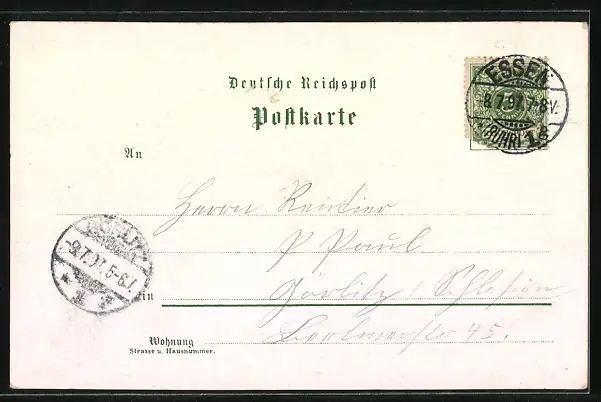 Deutsche Reichspost
Postkarte
ESSEN
-8.7.97.7-8V.
(RUHR) 1
An
Herrn Rentier
P Paul
GÖRLITZ
-9.7.97.5-6.
in
Görlitz i Schlesien
Wohnung
Berlinerstr 45.
Strasse u. Hausnummer.